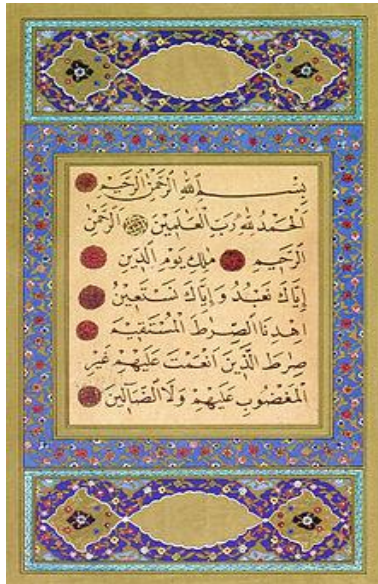 بِسْمِ اللهِ الرَّحْمٰنِ الرَّحِيمِ
اَلْحَمْدُ لِلّٰهِ رَبِّ الْعَالَمِينَ اَلرَّحْمٰنِ
الرَّحِيمِ مٰلِكِ يَوْمِ الدِّينِ
اِيَّاكَ نَعْبُدُ وَاِيَّاكَ نَسْتَعِينُ
اِهْدِنَا الصِّرَاطَ الْمُسْتَقِيمَ
صِرَاطَ الَّذِينَ اَنْعَمْتَ عَلَيْهِمْ غَيْرِ
الْمَغْضُوبِ عَلَيْهِمْ وَلَا الضَّالِّينَ